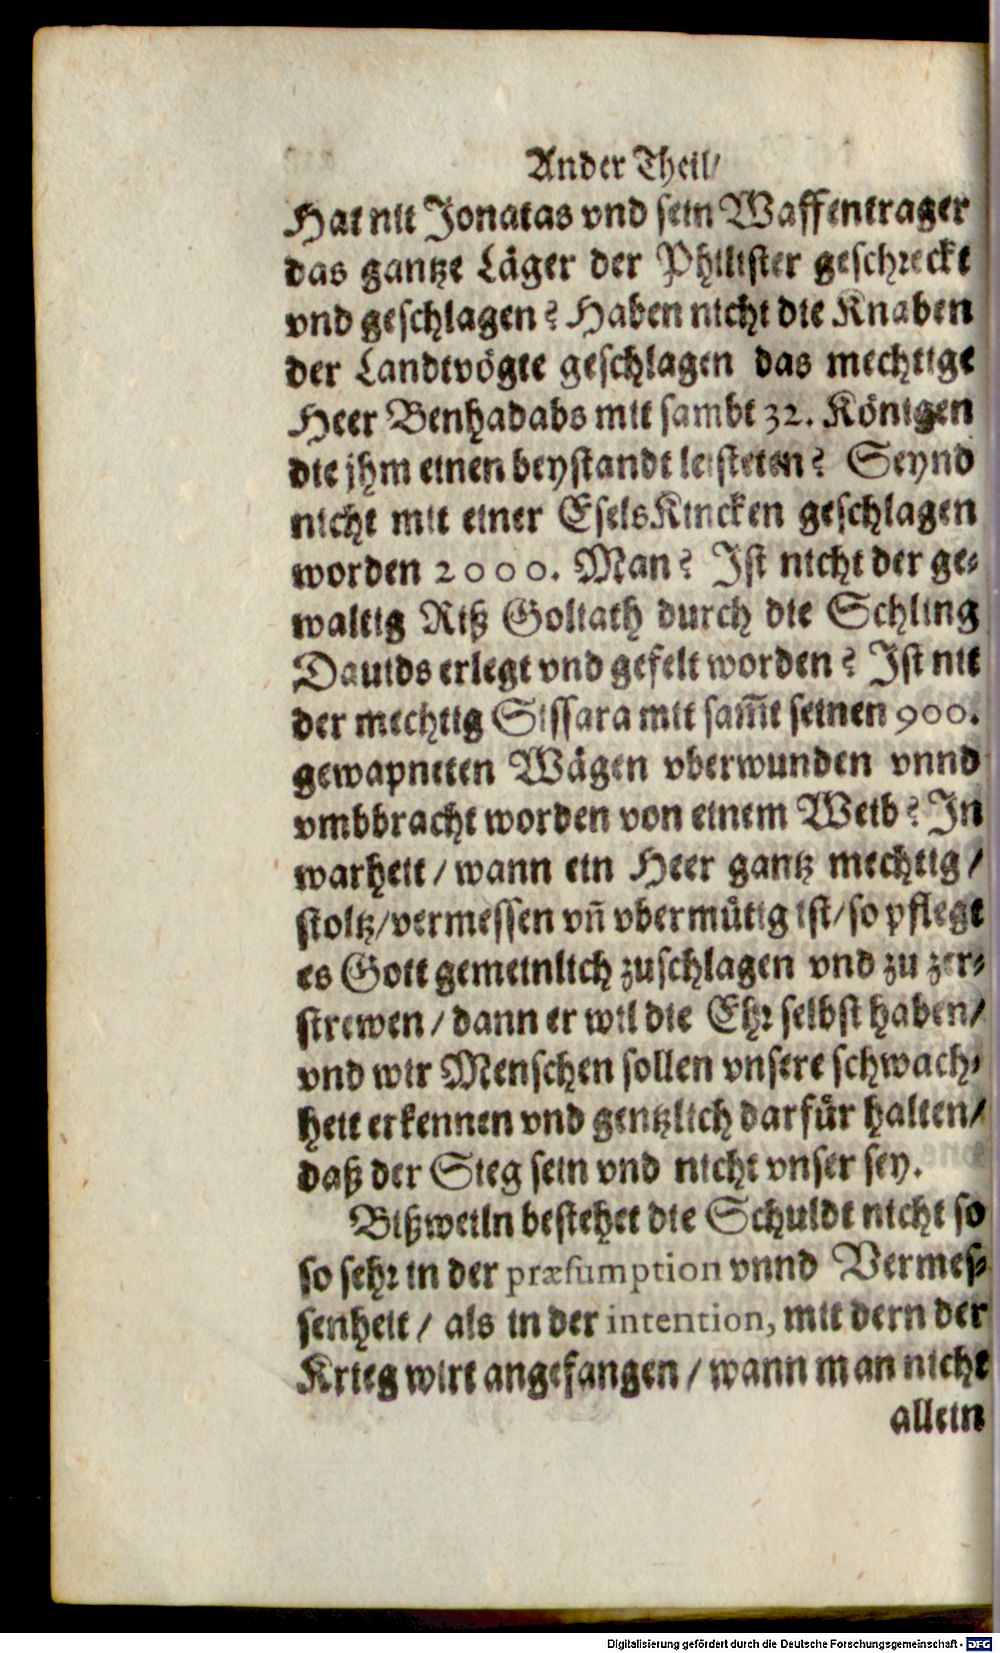 Ander Theil/
Hat nit Jonatas vnd sein Waffentrager
das gantze Läger der Philister geschreckt
vnd geschlagen? Haben nicht die Knaben
der Landtvögte geschlagen das mechtige
Heer Benhadabs mit sambt 32. Königen
die jhm einen beystandt leisteten? Seynd
nicht mit einer EselsKincken geschlagen
worden 2000. Man? Ist nicht der ge-
waltig Riß Goliath durch die Schling
Dauids erlegt vnd gefelt worden? Ist nit
der mechtig Sissara mit sam̃t seinen 900.
gewapneten Wägen vberwunden vnnd
vmbbracht worden von einem Weib? In
warheit/ wann ein Heer gantz mechtig/
stoltz/vermessen vñ vbermütig ist/ so pflegt
es Gott gemeinlich zuschlagen vnd zu zer-
strewen/ dann er wil die Ehr selbst haben/
vnd wir Menschen sollen vnsere schwach-
heit erkennen vnd gentzlich darfür halten/
daß der Sieg sein vnd nicht vnser sey.
Bißweiln bestehet die Schuldt nicht so
so sehr in der præsumption vnnd Vermes-
senheit/ als in der intention, mit dern der
Krieg wirt angefangen/ wann man nicht
allein
Digitalisierung gefördert durch die Deutsche Forschungsgemeinschaft - DFG